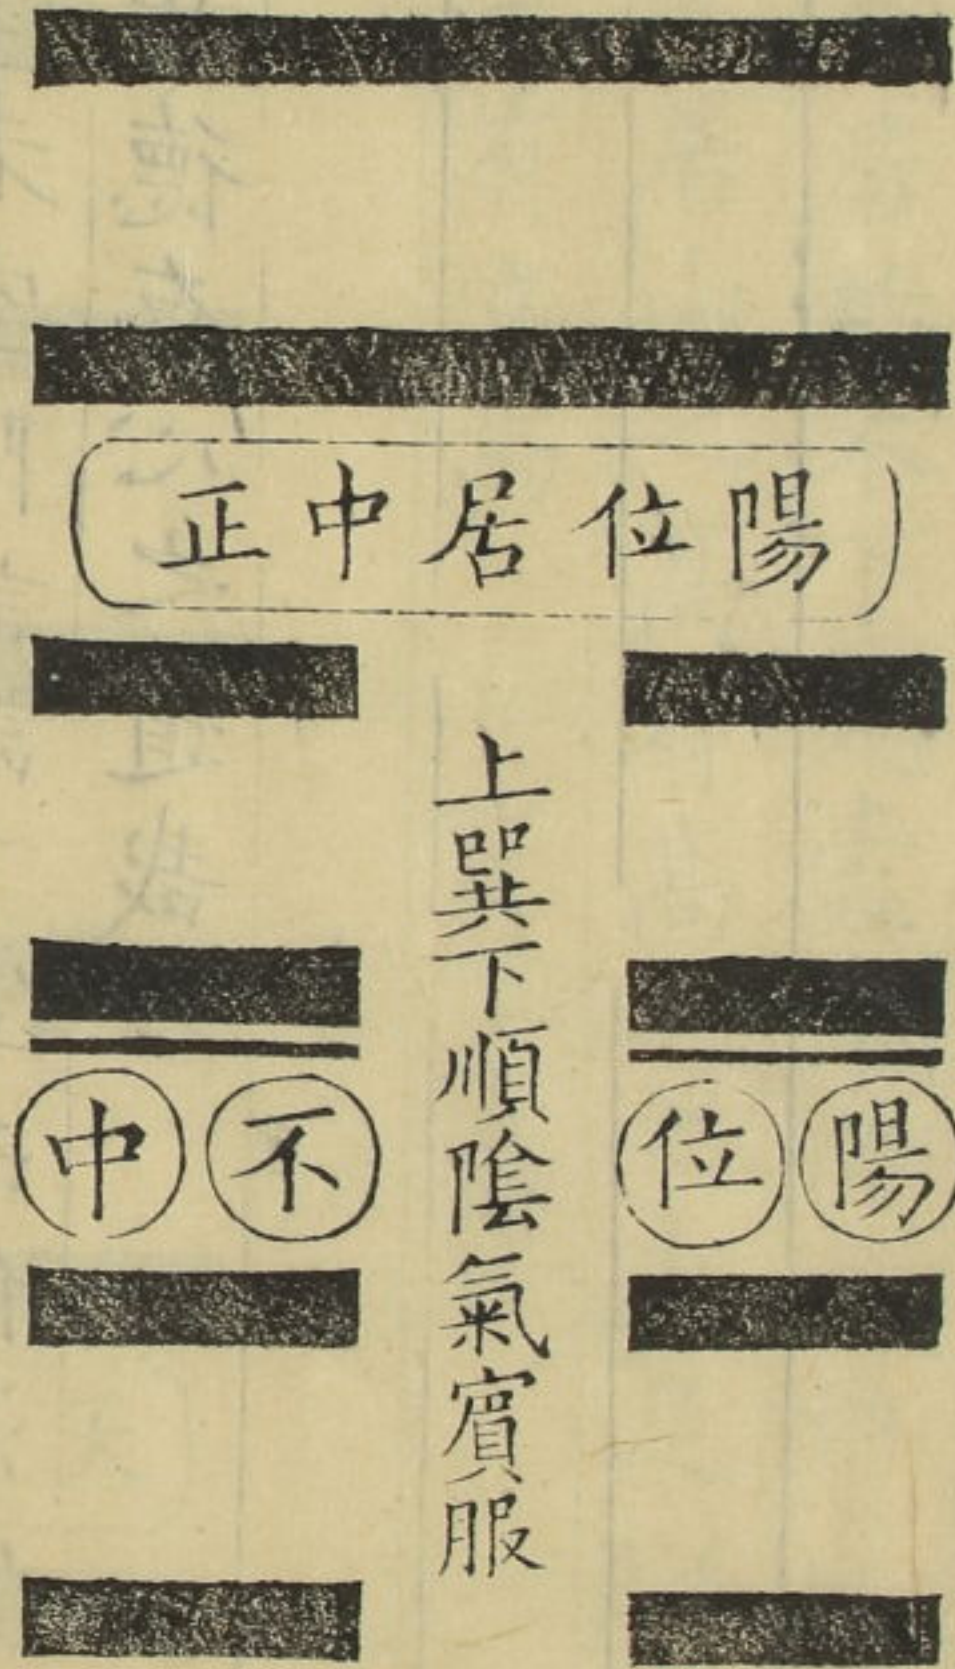 陽位居中正
上巽下順陰氣賓服
陽位不中